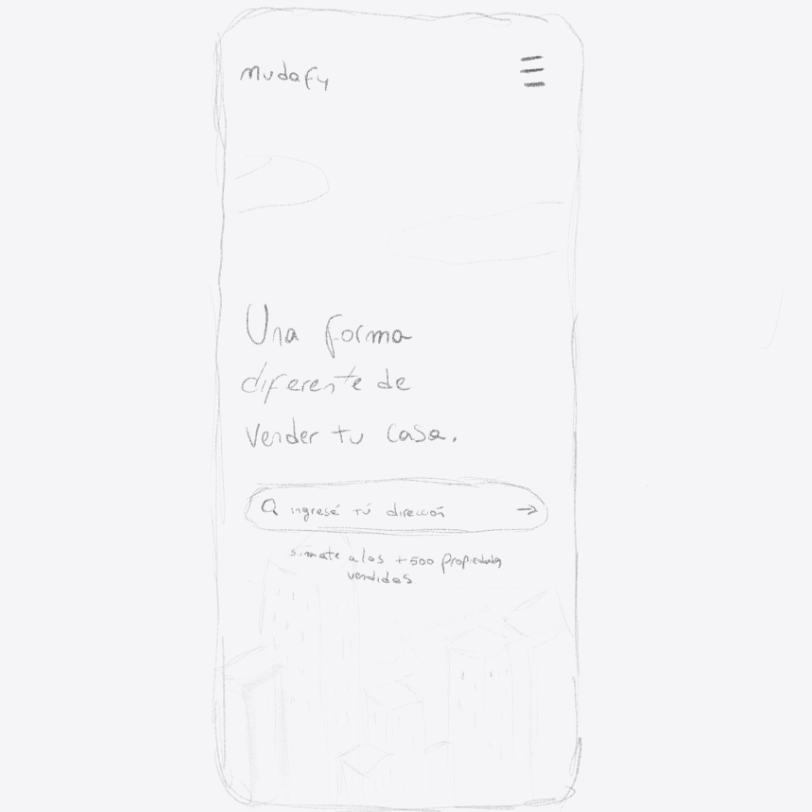 mudafy
Una forma
diferente de
vender tu casa.
ingresé tú dirección
súmate a las +500 propiedades
vendidas